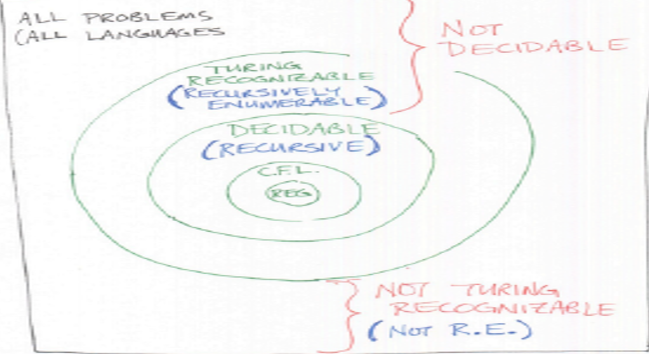 ALL PROBLEMS
(ALL LANGUAGES
NOT
DECIDABLE
TURING
RECOGNIZABLE
(RECURSIVELY
ENUMERABLE)
DECIDABLE
(RECURSIVE)
C.F.L.
REG
NOT TURING
RECOGNIZABLE
(NOT R.E.)